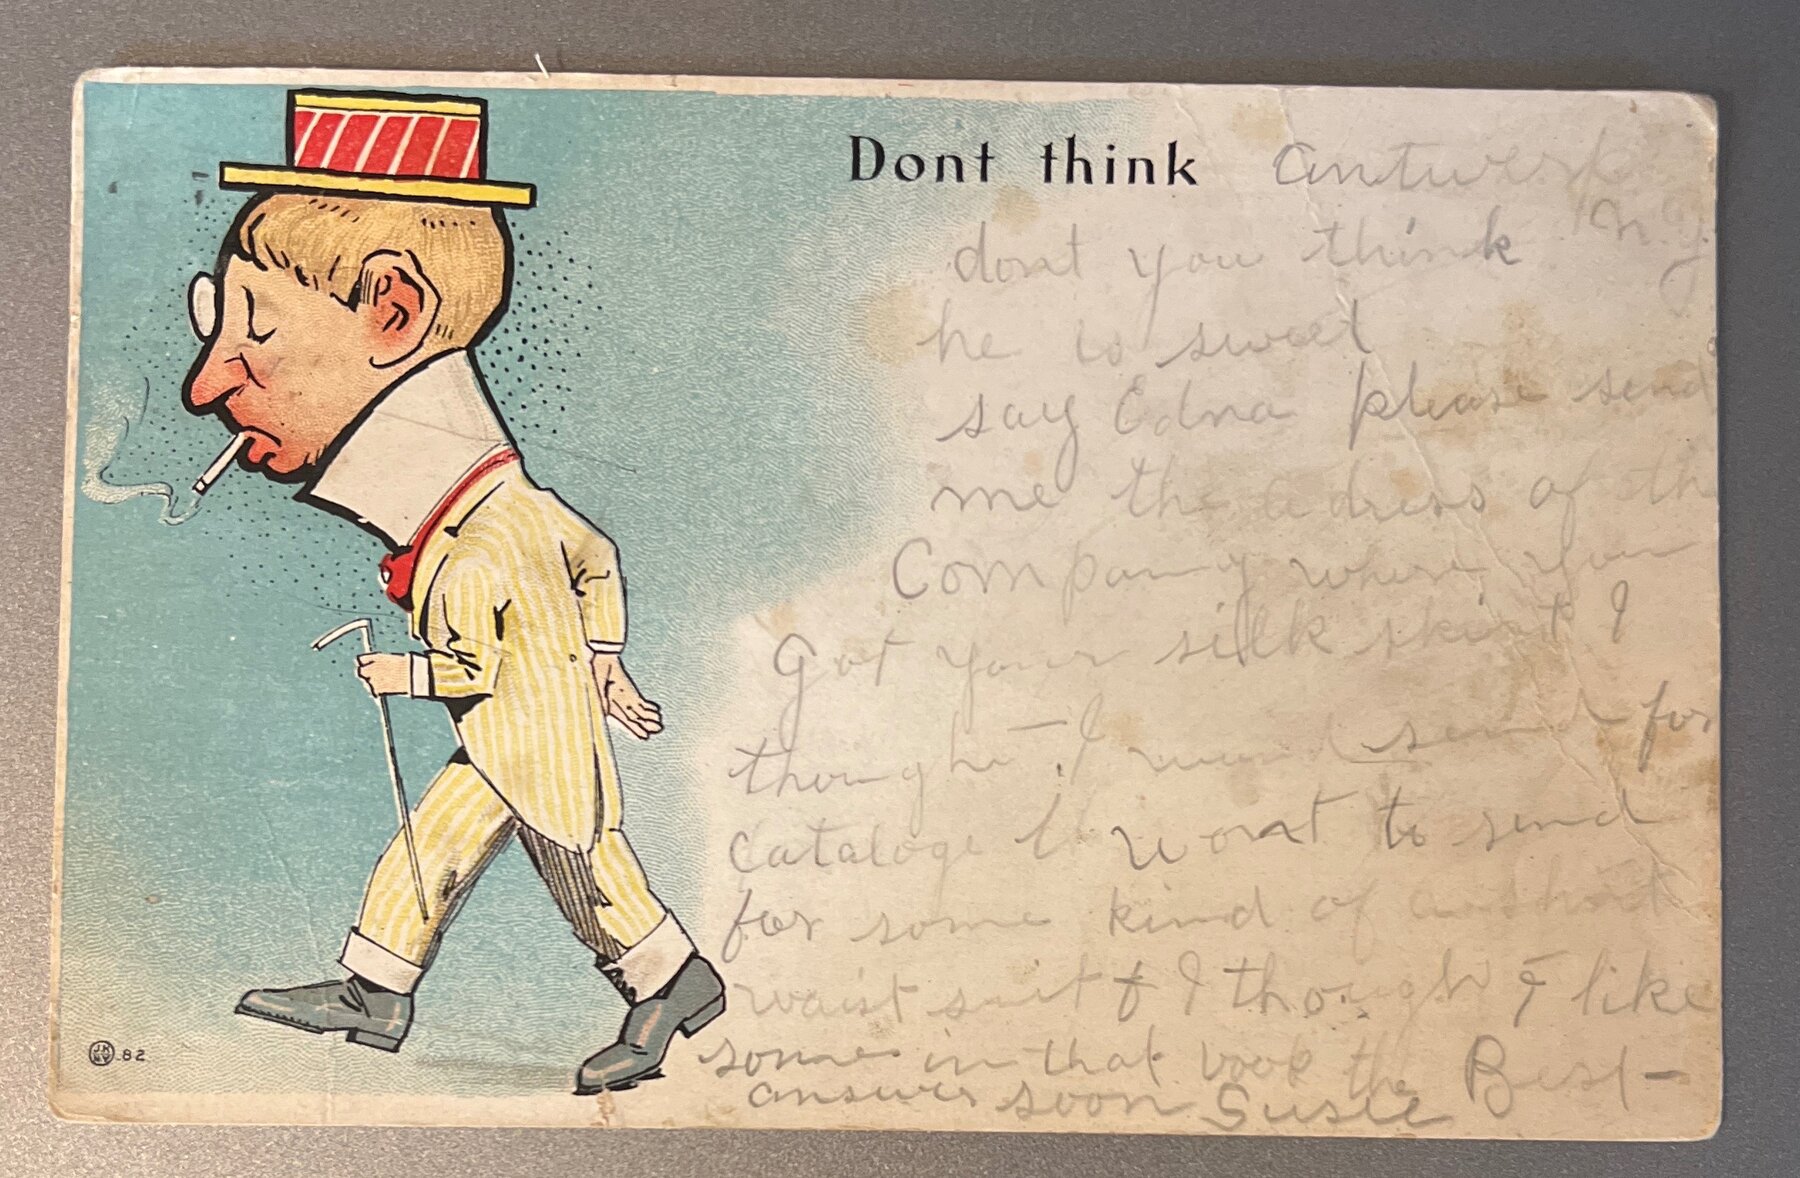 Dont think Antwerp
N.Y.
dont you think
he is sweet
say Edna please send
me the adress of the
Company where you
Got your silk skirt I
thought I send for
cataloge I want to send
for some kind of a shirt
waist suit & I thought I like
some in that book the Best—
answer soon Susie
82